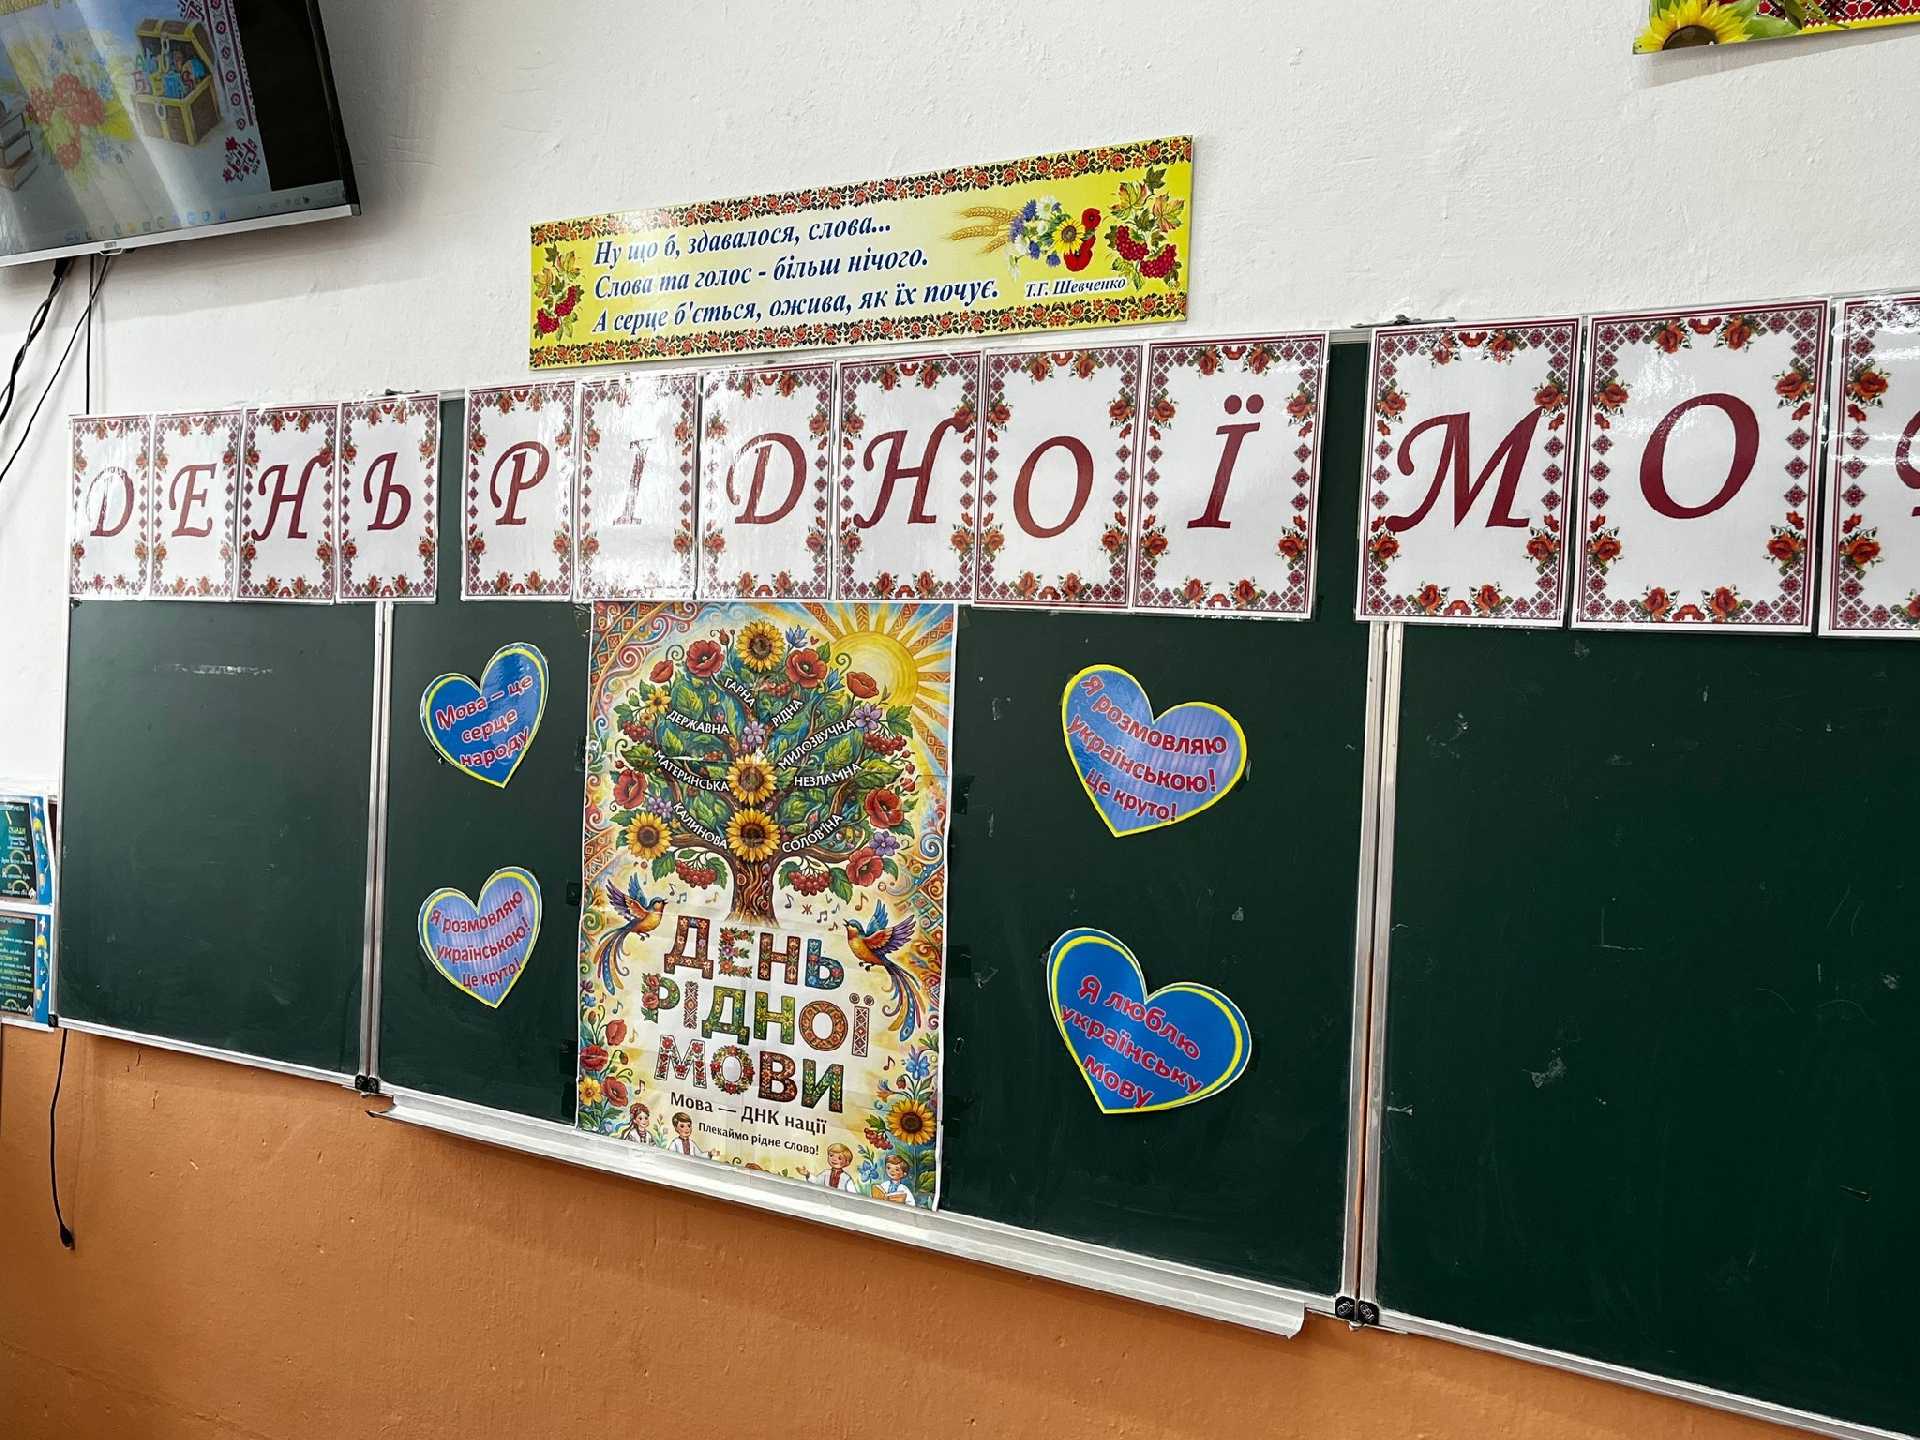 Ну що б, здавалося, слова...
Слова та голос - більш нічого.
А серце б'ється, ожива, як їх почує.
Т.Г. Шевченко
ДЕНЬ РІДНОЇ МО
Мова – це
серце
народу
Я розмовляю
українською!
Це круто!
ГАРНА
РІДНА
ДЕРЖАВНА
МИЛОЗВУЧНА
МАТЕРИНСЬКА
НЕЗЛАМНА
КАЛИНОВА
СОЛОВ'ЇНА
ДЕНЬ
РІДНОЇ
МОВИ
Мова — ДНК нації
Плекаймо рідне слово!
Я розмовляю
українською!
Це круто!
Я люблю
українську
мову